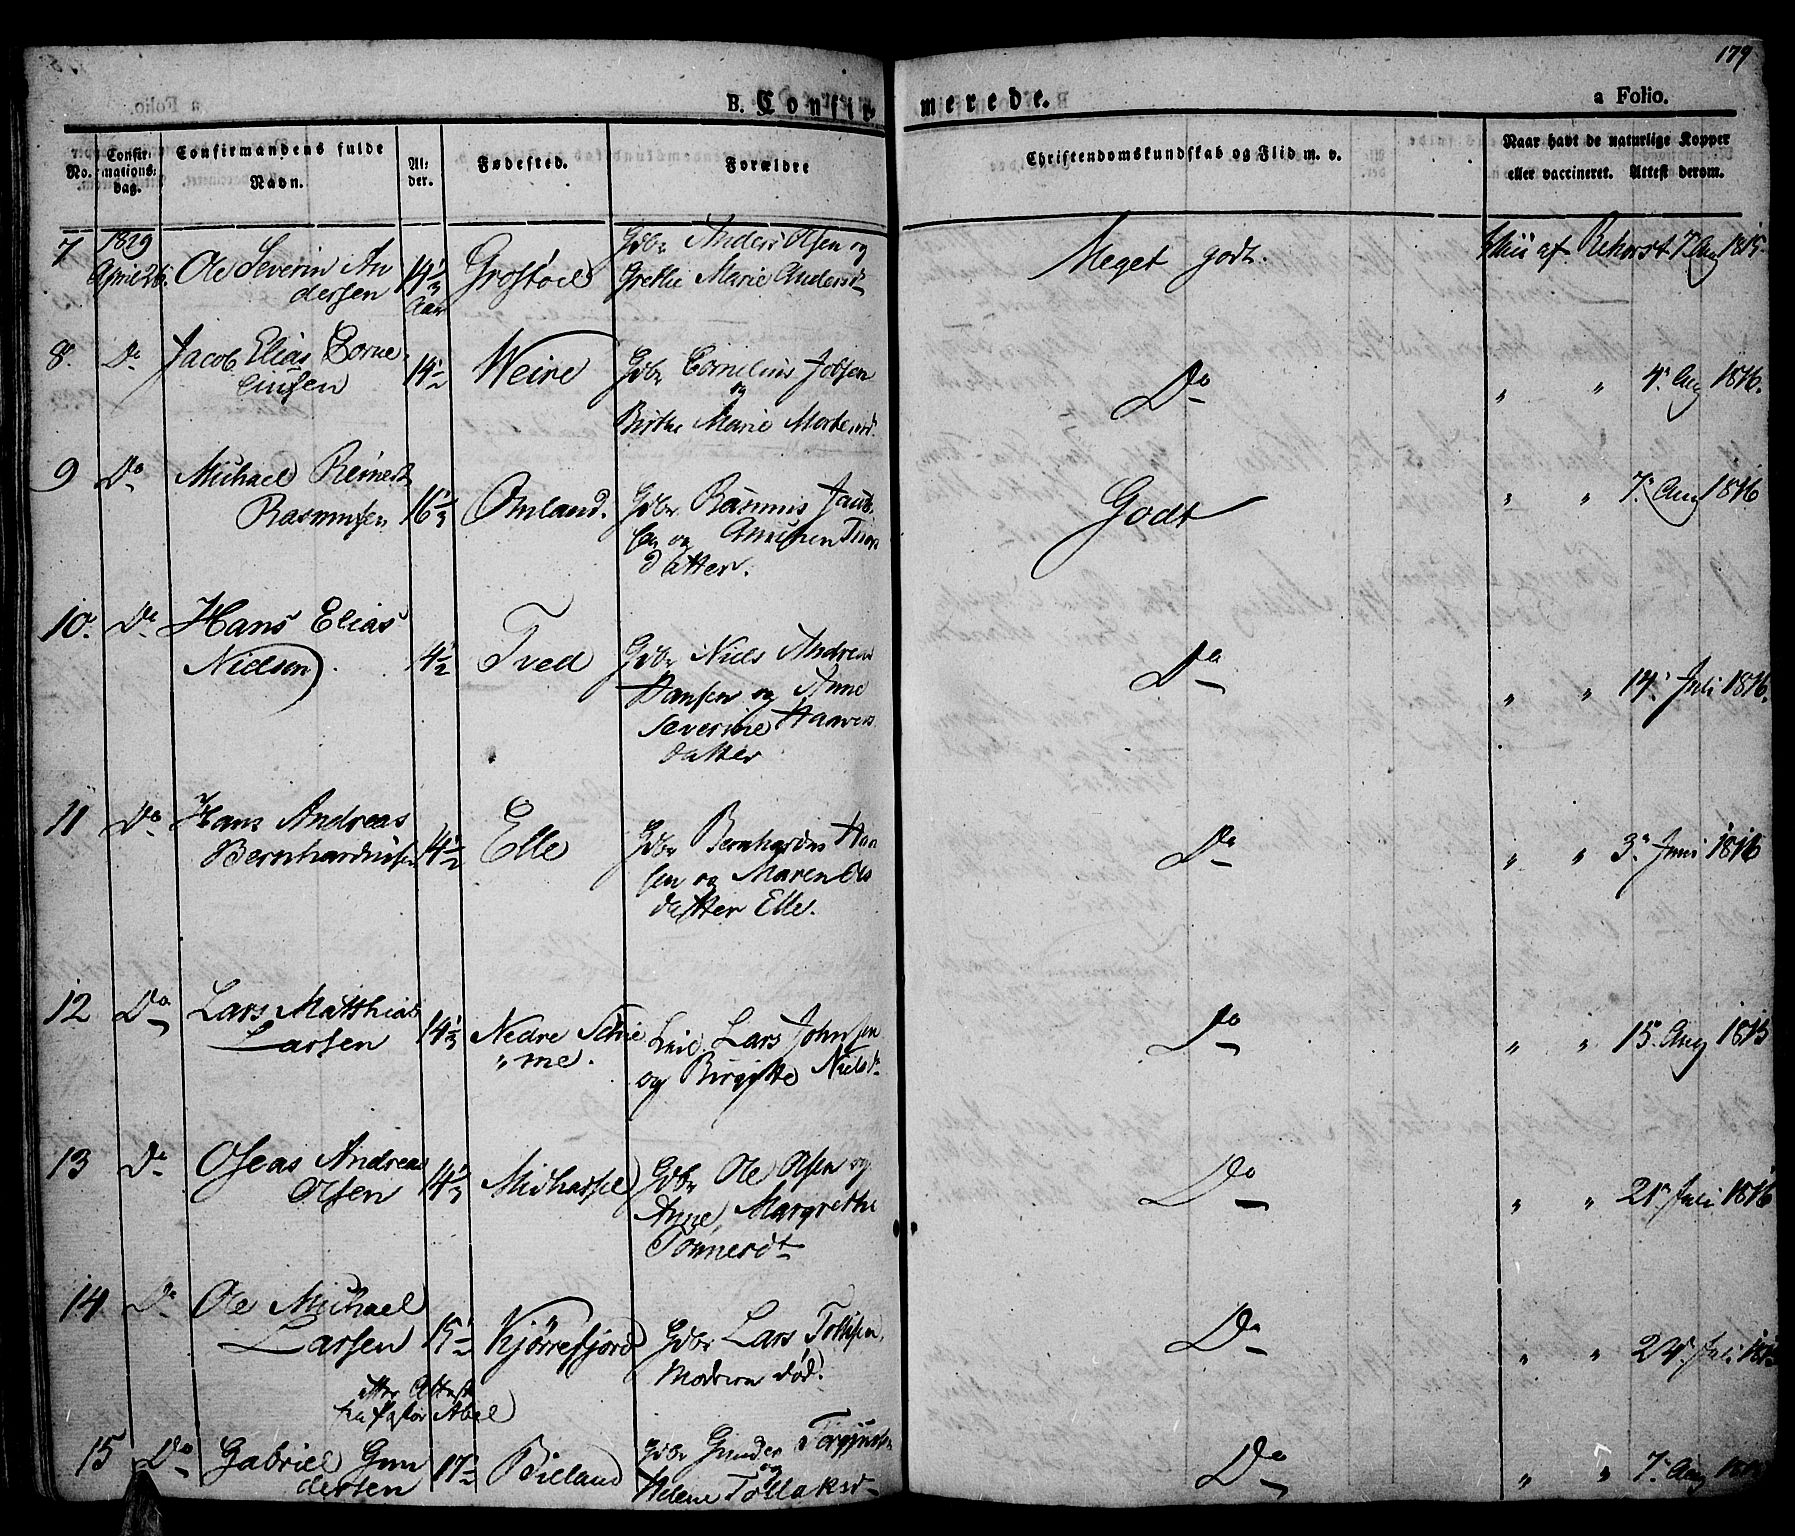 179
B. Confir- merede.
a Folio.
No.
Confir-
mations-
dag.
Confirmandens fulde
Navn.
Al-
der.
Fødested.
Forældre
Christendomskundskab og Flid m. v.
Naar havt de naturlige Kopper
eller vaccineret. Attest derom.
7 1829
April 26. Ole Severin An
dersen 14 1/3 Aar Grostøel Gdbr Anders Olsen og
Grethe Marie Andersd Meget godt. af Rehorst 7 Aug 1815.
8. Do Jacob Elias Corne-
liusen 14 1/2 Weire Gdbr Cornelius Jobsen
og
Birthe Marie Mortensd. Do " " 4. Aug 1816.
9 Do Michael Reinert
Rasmusen 16 1/3 Omland. Gdbr Rasmus Jacob
sen og
datter. Godt " " 7. Aug 1816
10. Do Hans Elias
Nielsen 14 1/2 Tved Gdbr Niels Andreas
Hansen og Anne
Severine Haavers
datter Do " " 14. Juli 1816.
11 Do Hans Andreas
Bernhardusen 14 1/2 Elle Gdbr Bernhardus Han
sen og Maren Ols
datter Elle. Do " " 3. Juni 1816
12 Do Lars Matthias
Larsen 14 1/3 Nedre Schie
"me. Lars Johnsen
og Birgitte Nielsd Do " " 15. Aug 1815
13 Do Oseas Andreas
Olsen 14 1/3 Midhassel Gdbr Ole Olsen og
Anne Margrethe
Tønnesdt Do " " 21. Juli 1816
14 Do Ole Michael
Larsen 15 1/2 Kjørrefjord Gdbr Lars Tollisen,
Moderen død. Do " " 24. Juli
efter Attest
fra Pastor Abel
15 Do Gabriel Gun
dersen 17 1/2 Billand Gdbr Gunder Torgjus
og
Helene Tollaksd Do " " 7. Aug